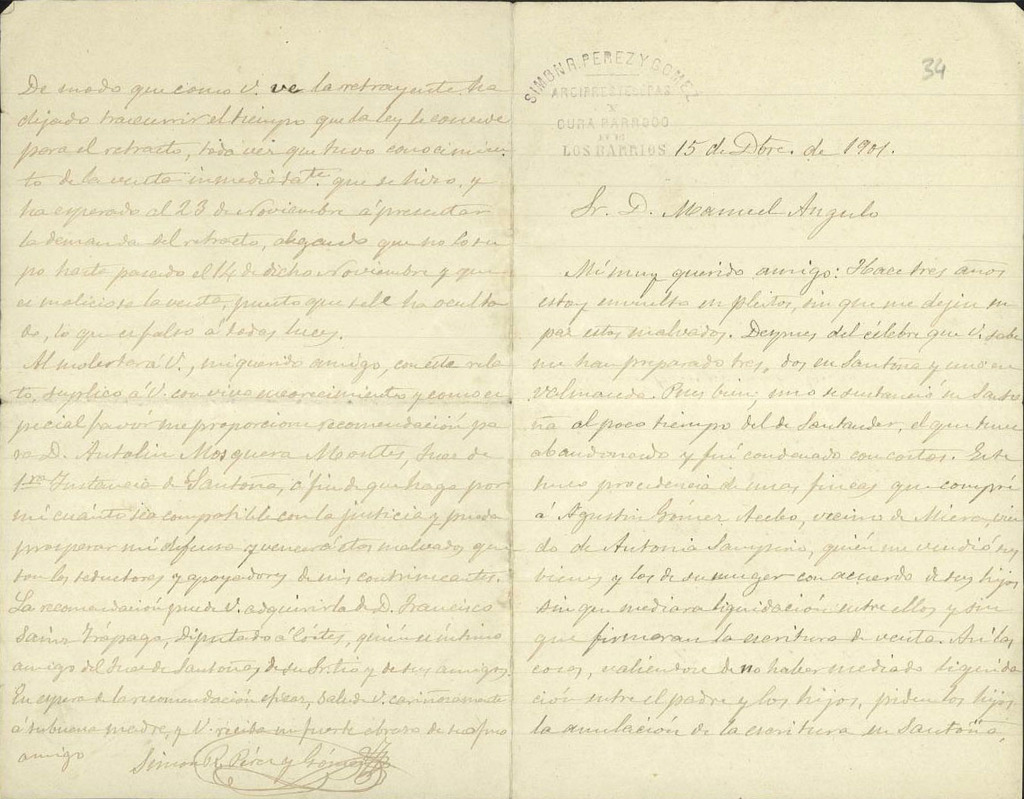 34
SIMON R. PEREZ Y GOMEZ
ARCIPRESTE
CURA PARROCO
LOS BARRIOS
15 de Dbre. de 1901.
Sr. D. Manuel Angulo
Mi muy querido amigo: Hace tres años
estoy envuelto en pleitos, sin que me dejen en
paz estos malvados. Despues del célebre que V. sabe
me han preparado tres, dos en Santoña y uno en
Valmaseda. Pues bien, uno se sustanció en Santo-
ña al poco tiempo del de Santander, el que tuve
abandonado y fuí condenado con costas. Este
tuvo procedencia de unas fincas que compré
á Agustin Gómez Acebo, vecino de Miera, viu-
do de Antonia Samperio, quién me vendió sus
bienes y los de su muger con acuerdo de sus hijos
sin que mediara liquidación entre ellos y sin
que firmaran la escritura de venta. Asi las
cosas, valiendose de no haber mediado liquida-
ción entre el padre y los hijos, piden los hijos
la anulación de la escritura en Santoña,
De modo que como V. ve la retrayente ha
dejado trascurrir el tiempo que la ley le concede
para el retracto, toda vez que tuvo conocimien-
to de la venta inmediadate. que se hizo, y
ha esperado al 23 de Noviembre á presentar
la demanda del retracto, alegando que no lo su-
po hasta pasado el 14 de dicho Noviembre y que
es maliciosa la venta, puesto que se le ha oculta-
do, lo que es falso á todas luces.
Al molestar á V., mi querido amigo, con este rela-
to, suplico á V. con vivo encarecimiento y como es-
pecial favór me proporcione recomendación pa-
ra D. Antolin Mosquera Montes, Juez de
1ra Instancia de Santoña, á fin de que haga por
mí cuánto sea compatible con la justicia y pueda
prosperar mi defensa y vencer á estos malvados que
son los seductores y apoyadores de mis contrincantes.
La recomendación puede V. adquirirla de D. Francisco
Sainz Trápaga, Diputado á Córtes, quién es íntimo
amigo del Juez de Santoña, de su Sr. tio y de sus amigos.
En espera de la recomendación eficaz, salude V. cariñosamente
á su buena madre, y V. reciba un fuerte abrazo de su afmo
amigo
Simon R. Pérez y Gómez